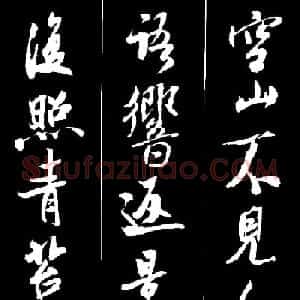 空山不見
語響返景
復照青苔
Shufaziliao.com